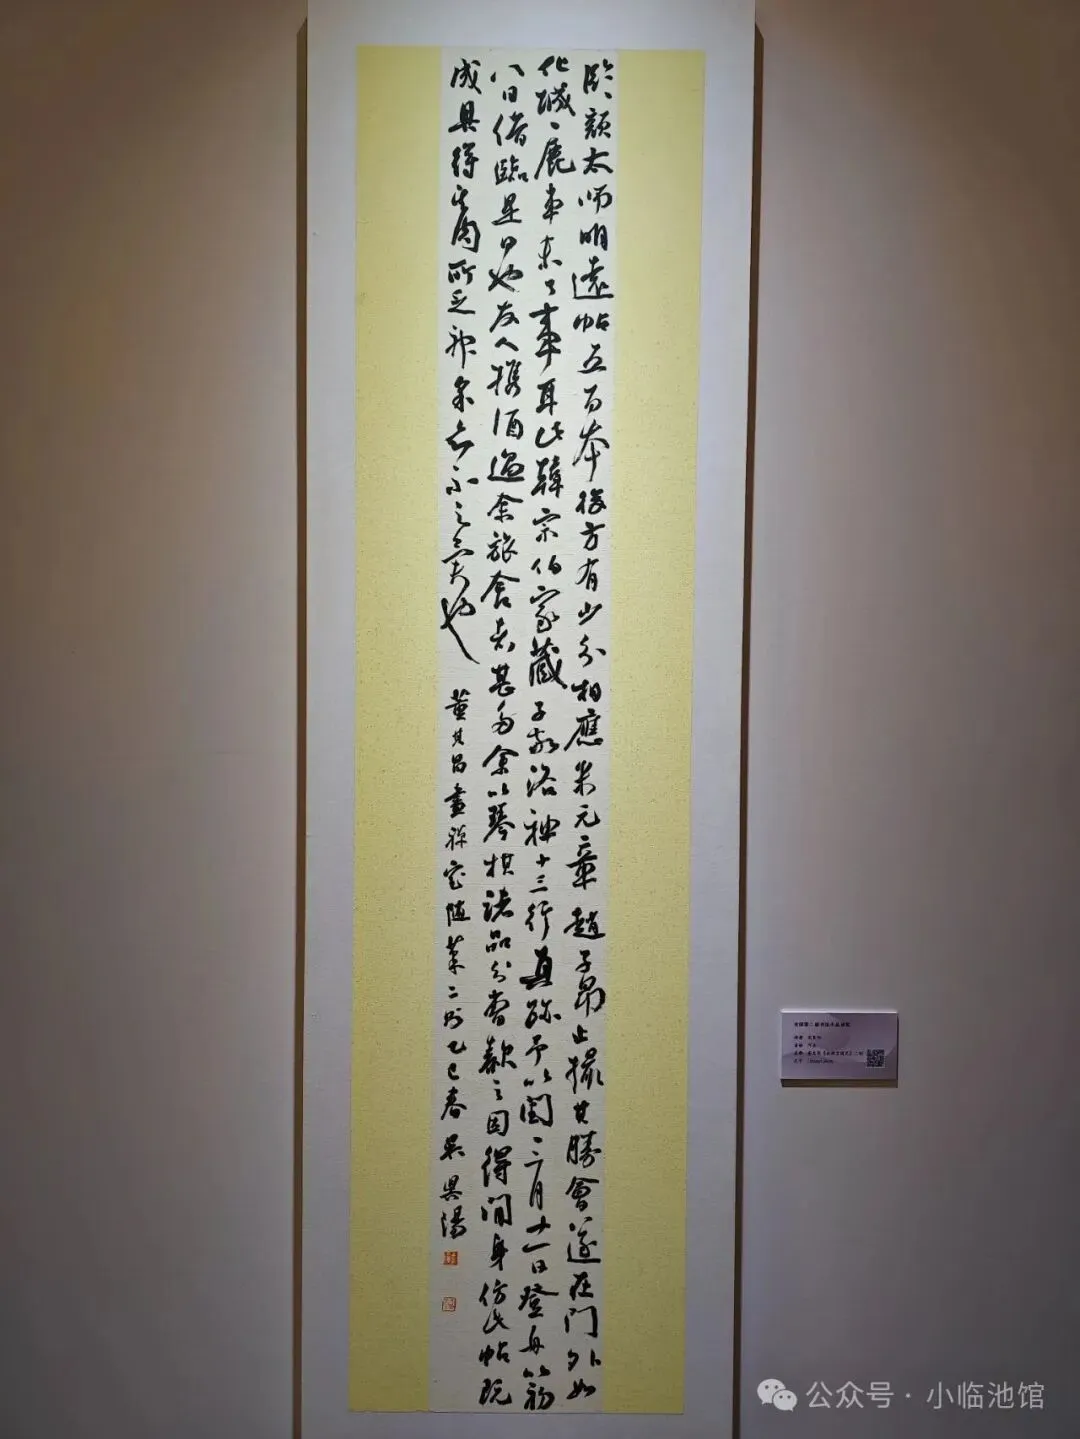 臨顏太師明遠帖五百本後方有少分相應米元章趙子昂止撮其勝會遂在門外如
化城鹿車未了事耳此韓宗伯家藏子敬洛神十三行真跡予以閏三月十一日登舟以初
八日借臨是日也友人攜酒過余旅舍者甚多余以琴棋諸品分曹款之因得閒身仿此帖既
成具得其肉所乏神采亦不足異也
董其昌畫禪室隨筆二則乙巳春吳興湯
公众号·小临池馆